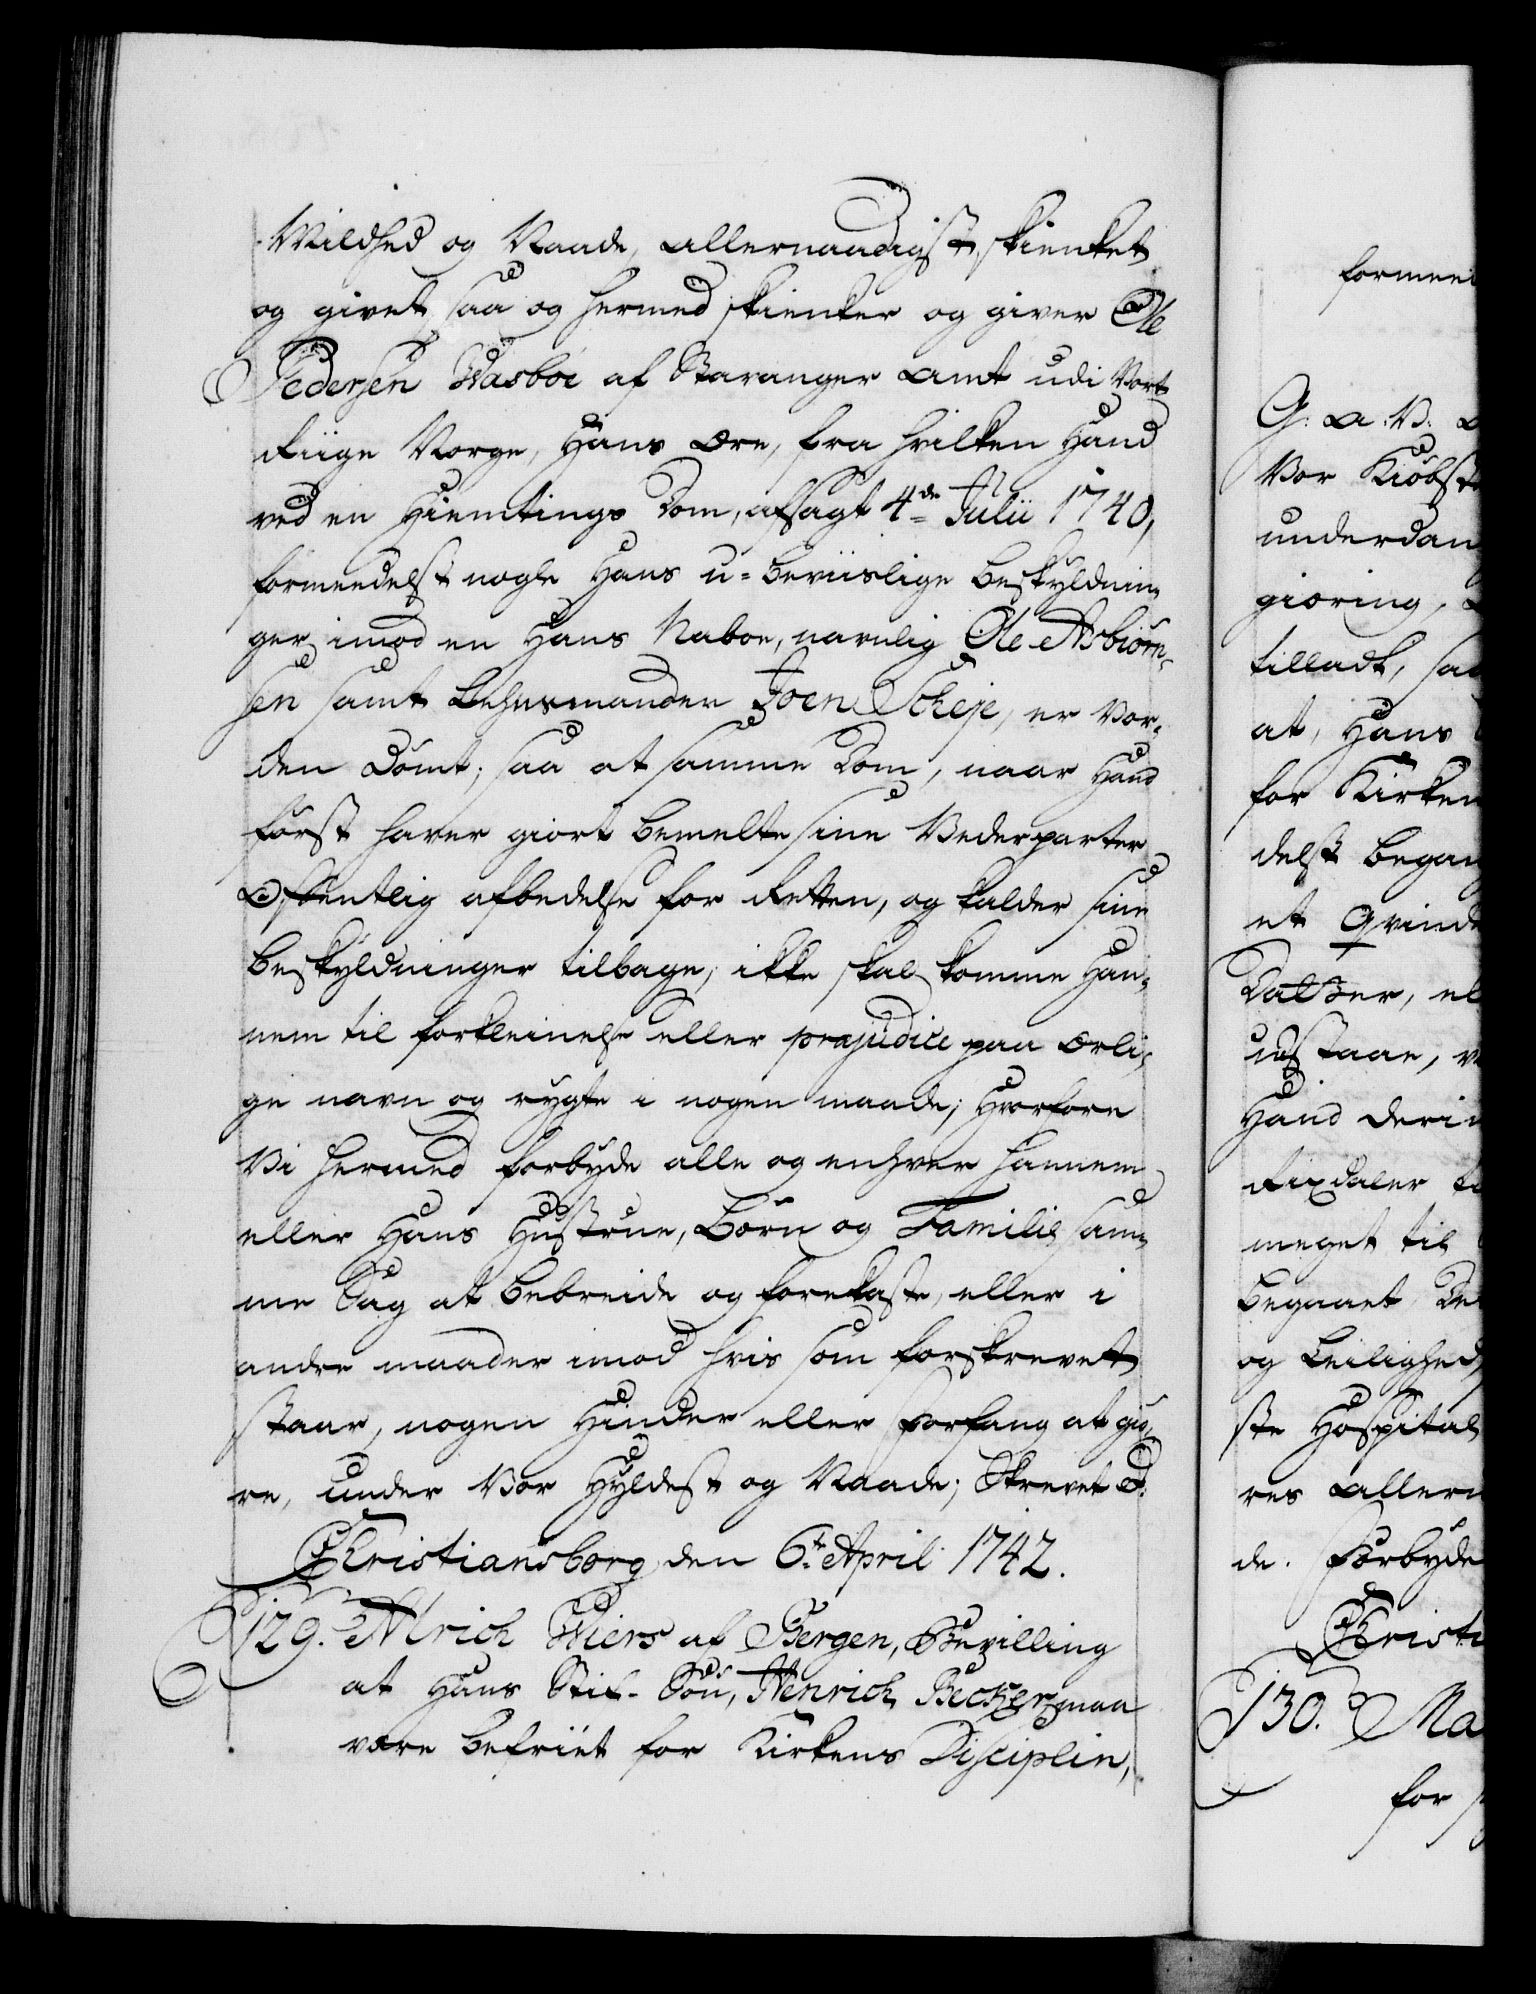 Mildhed og Naade, allernaadigst skienket
og givet, saa og hermed skienker og giver Ole
Pedersen Wasboe af Stavanger amt udi Vort
Riige Norge, Hans ære, fra hvilken Hand
ved en Hiemtings Dom, afsagt 4de Julii 1740,
formedelst nogle Hans u-beviislige Beskyldnin-
ger, imod en Hans Naboe, navnlig Ole Asbiørn-
sen samt Lehnsmanden Joen Scheje, er Vor-
den Dømt; saa at samme Dom, naar Hand
først haver giort bemelte sine Vederparter
Offentlig afbedelse for Retten, og kalder sine
Beskyldninger tilbage, ikke skal komme Han-
nem til forkleinelse eller præjudice paa ærli-
ge navn og rygte i nogen maade; Hvorfore
Vi hermed forbyde alle og enhver hannem
eller Hans Hustrue, Børn og Familie sam-
me Sag at bebreide og forekaste, eller i
andre maader imod hvis som forskrevet
staar, nogen Hinder eller Forfang at giø-
re, under Vor Hyldest og Naade; Skrevet P:
Christiansborg den 6te April 1742.
129. Alrich Wiers af Bergen, Bevilling
at Hans Stif-Søn, Henrich Becker maa
være befriet for Kirkens Disciplin,
formee
G: a: V: a
Vor Kiøbst
underdan
giøring,
tilladt, saa
at, Hans
for Kirken
delst began
et Qvinde
Datter, el
udstaae, v
Hand derim
Rixdaler ti
meget til
begaaet De
og Leilighed
ste Hospital
res allern
de. Forbyde
Christi
130. Ma
for